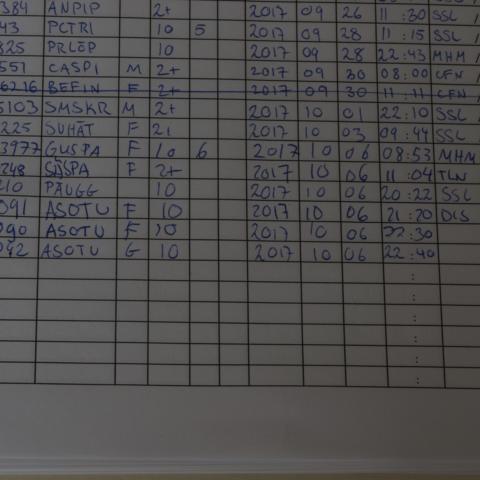 384 ANPIP 2+ 2017 09 26 11:30 SSL
43 PCTRI 10 5 2017 09 28 11:15 SSL
825 PRLOP 10 2017 09 28 22:43 MHM
551 CASPI M 2+ 2017 09 30 08:00 CFN
6216 BEFIN F 2+ 2017 09 30 11:11 CFN
5103 SMSKR M 2+ 2017 10 01 22:10 SSL
225 SUHAT F 2+ 2017 10 03 09:44 SSL
3977 GUSPA F 10 6 2017 10 06 08:53 MHM
248 SASPA F 2+ 2017 10 06 11:04 TLN
210 PAUGG 10 2017 10 06 20:22 SSL
091 ASOTU F 10 2017 10 06 21:20
090 ASOTU F 10 2017 10 06 22:30
092 ASOTU G 10 2017 10 06 22:40